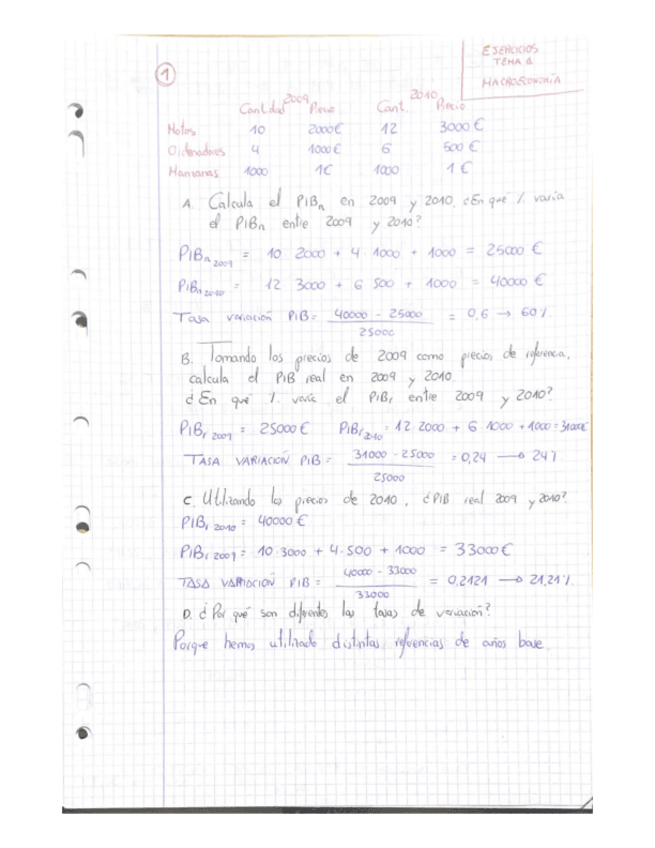 EJERCICIOS
TEMA 1
MACROECONOMÍA
1
2009 2010
Cantidad Precio Cant. Precio
Motos 10 2000€ 12 3000€
Ordenadores 4 1000€ 6 500€
Manzanas 1000 1€ 1000 1€
A. Calcula el PIBn en 2009 y 2010. ¿En qué % varía
el PIBn entre 2009 y 2010?
PIBn 2009 = 10 2000 + 4 1000 + 1000 = 25000 €
PIBn 2010 = 12 3000 + 6 500 + 1000 = 40000 €
Tasa variación PIB = 40000 - 25000 = 0,6 → 60%
25000
B. Tomando los precios de 2009 como precios de referencia,
calcula el PIB real en 2009 y 2010
¿En qué % varía el PIBr entre 2009 y 2010?
PIBr 2009 = 25000€ PIBr 2010 = 12 2000 + 6 1000 + 1000 = 31000€
TASA VARIACIÓN PIB = 31000 - 25000 = 0,24 → 24%
25000
C. Utilizando los precios de 2010, ¿PIB real 2009 y 2010?
PIBr 2010 = 40000€
PIBr 2009 = 10·3000 + 4·500 + 1000 = 33000€
TASA VARIACIÓN PIB = 40000 - 33000 = 0,2121 → 21,21%
33000
D. ¿Por qué son diferentes las tasas de variación?
Porque hemos utilizado distintas referencias de años base